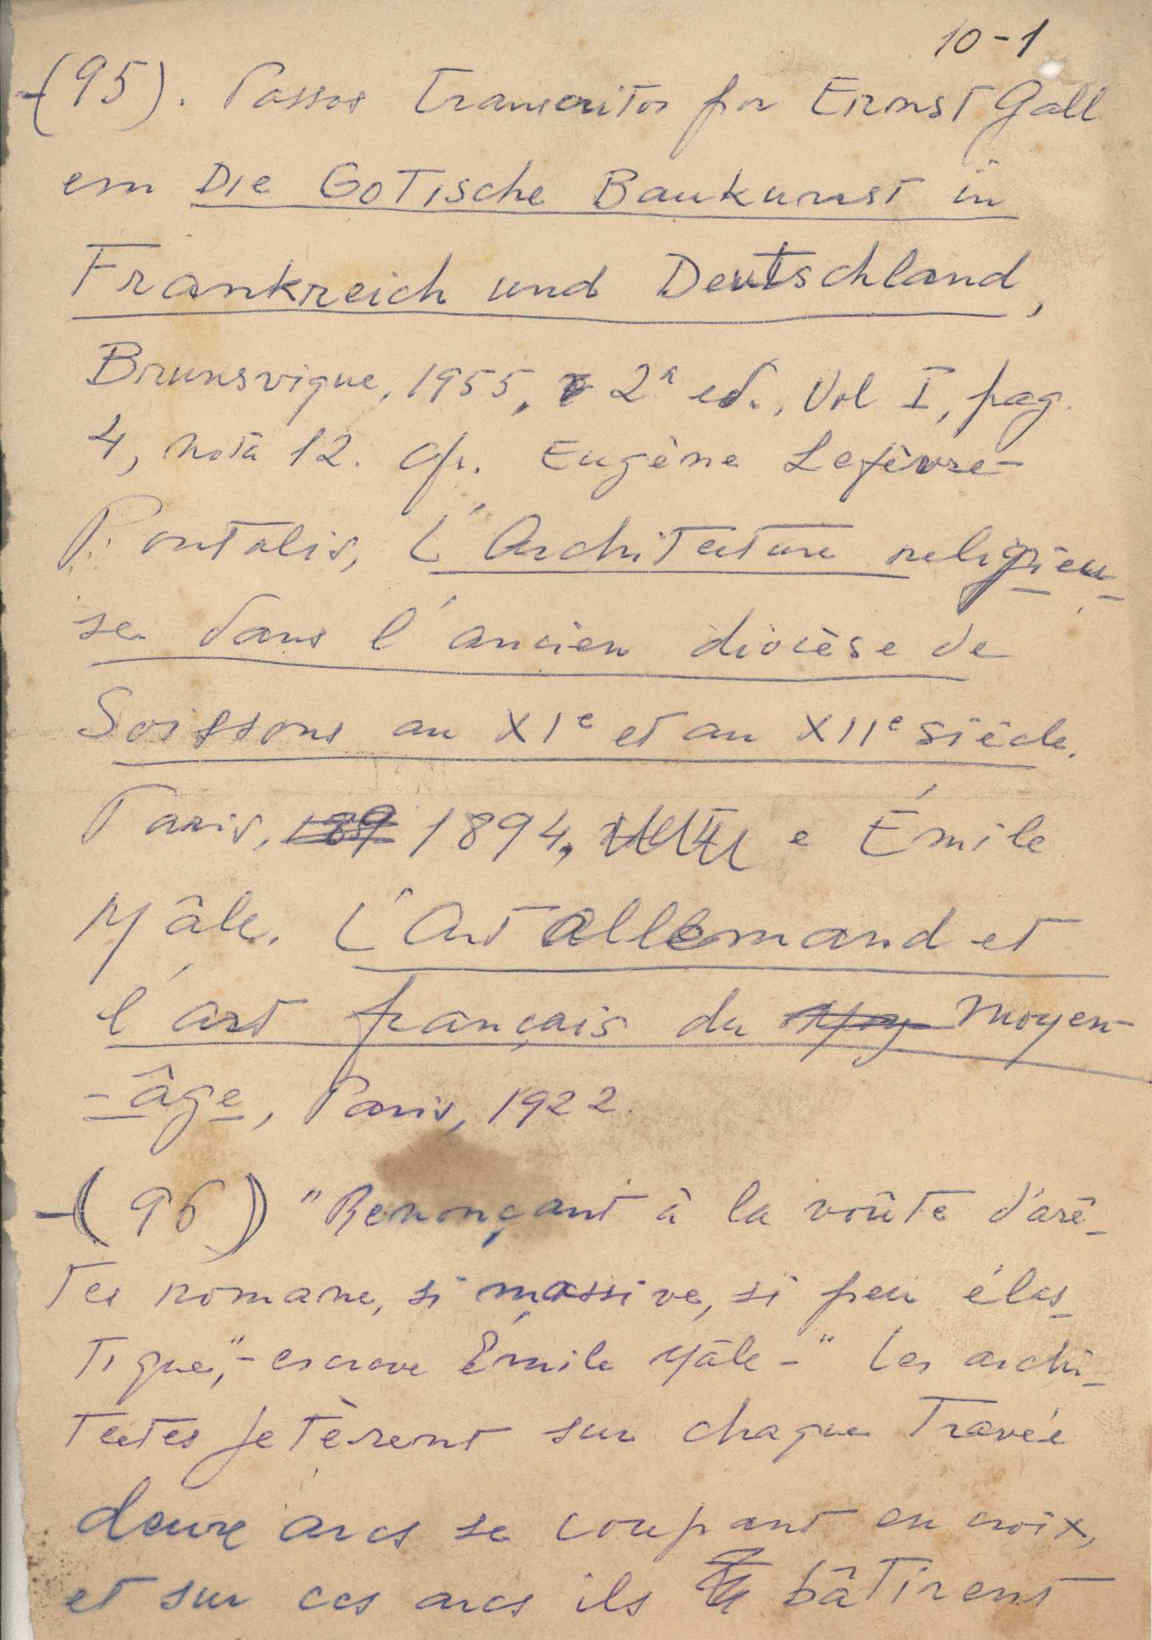 10-1
-(95). Passos transcritos por Ernst Gall
em Die Gotische Baukunst in
Frankreich und Deutschland,
Brunsvique, 1955, 2ª ed., Vol I, pag.
4, nota 12. Cfr. Eugène Lefèvre-
Pontalis, L'Architecture religieu-
se dans l'ancien diocèse de
Soissons au XIe et au XIIe siècle.
Paris, 189 1894, e Émile
Mâle. L'Art allemand et
l'art français du Moy Moyen-
-âge, Paris, 1922.
-(96) "Renonçant à la voûte d'arê-
tes romane, si massive, si peu élas-
tique," - escreve Émile Mâle - "les archi-
tectes jetèrent sur chaque travée
deux arcs se coupant en croix,
et sur ces arcs ils bâtirent